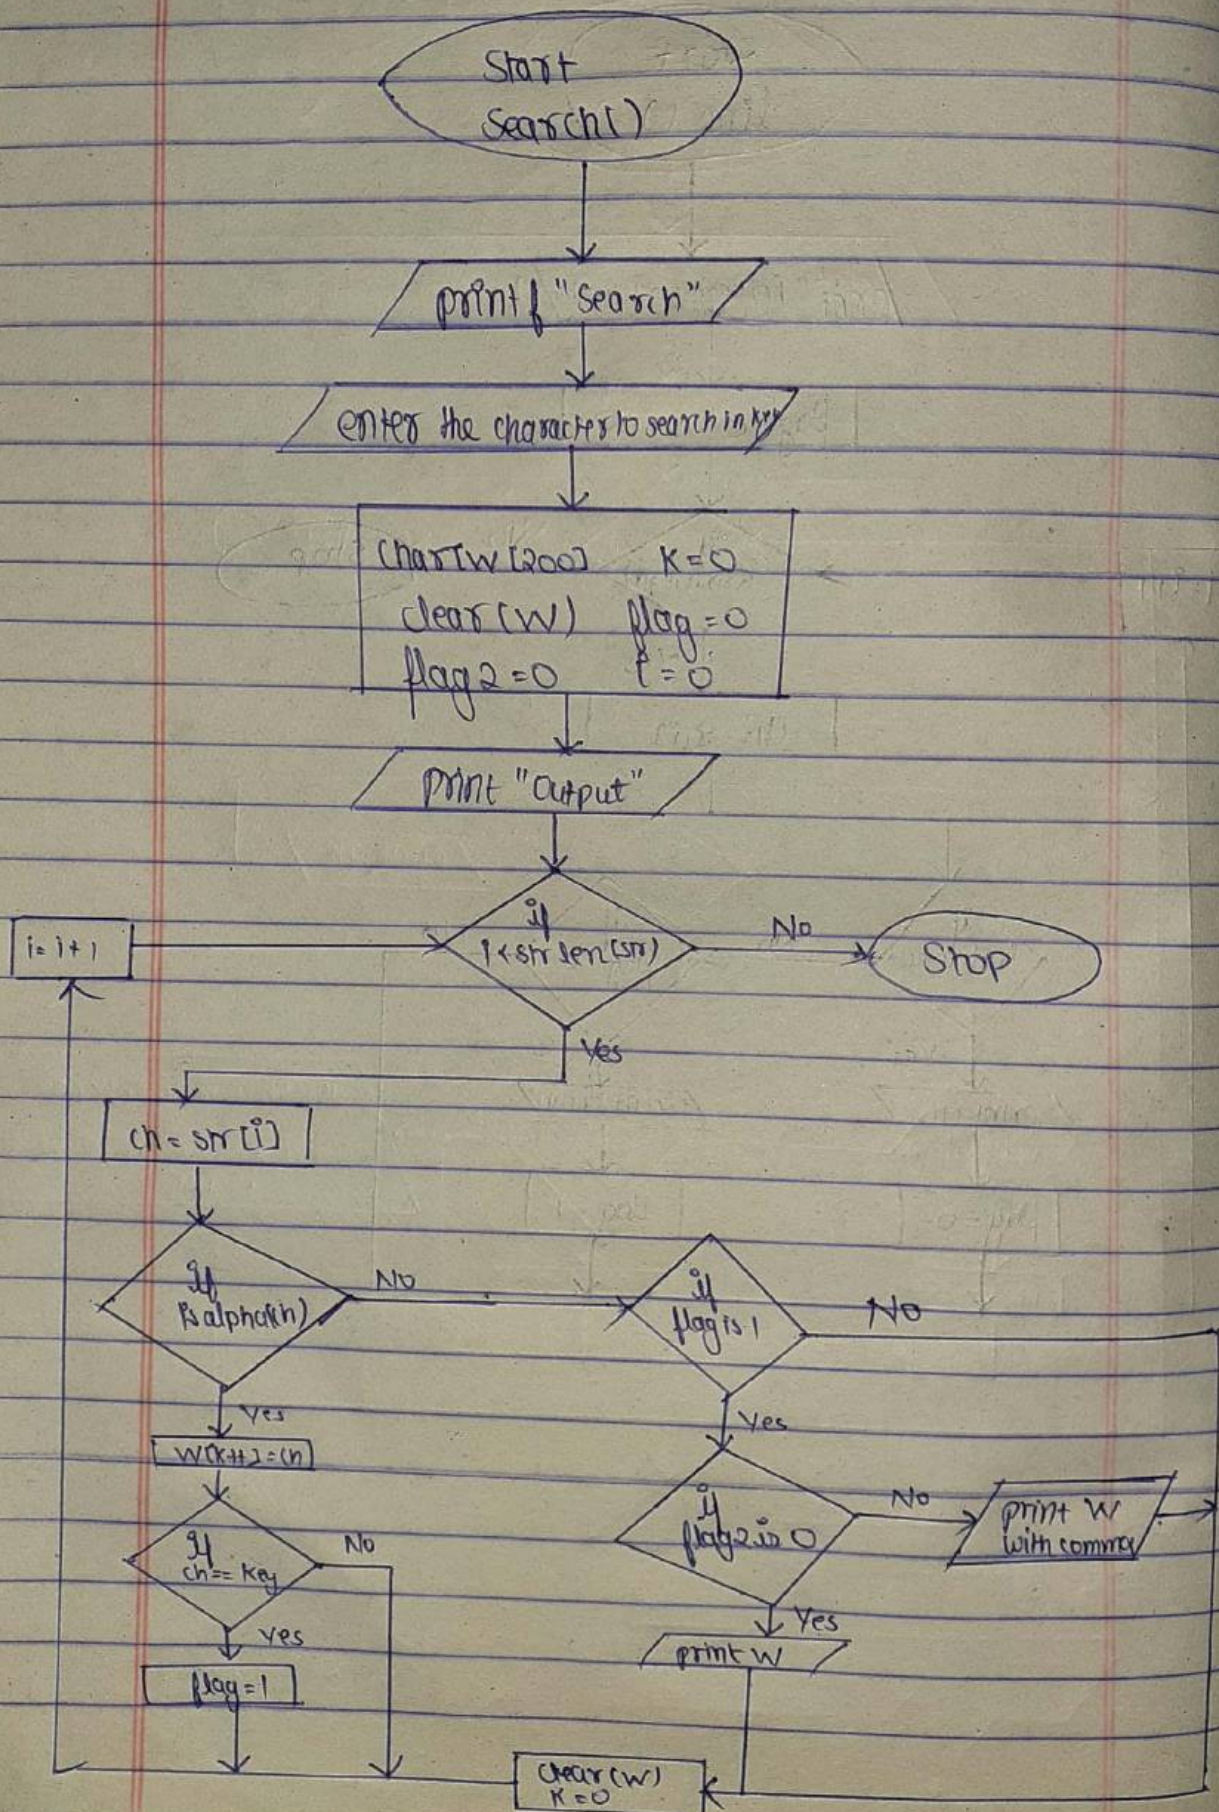 Start
Search()
printf "Search"
enter the character to search in key
Char W[200] K=0
clear(W) flag=0
flag2=0 i=0
print "Output"
i=i+1
if
i<strlen(str)
No
Stop
Yes
ch=str[i]
if
isalpha(ch)
No
if
flag is 1
No
Yes
W[K++]=ch
Yes
if
ch==key
No
if
flag2 is 0
No
print W
with comma
Yes
flag=1
Yes
print W
clear(W)
K=0